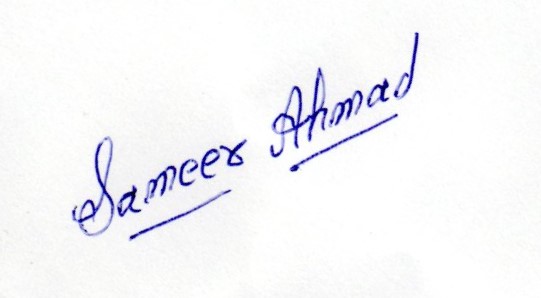 Sameer Ahmad